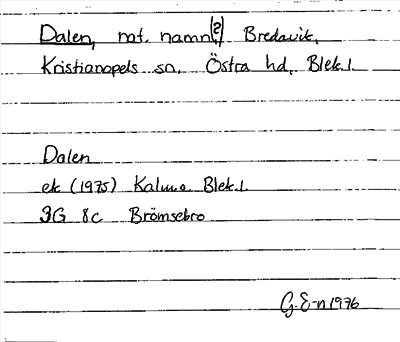 Dalen, nat. namn(?) Bredavik,
Kristianopels sn. Östra hd. Blek.l.
Dalen
ek (1975) Kalm o. Blek.l.
3G 8c Brömsebro
G. E-n 1976